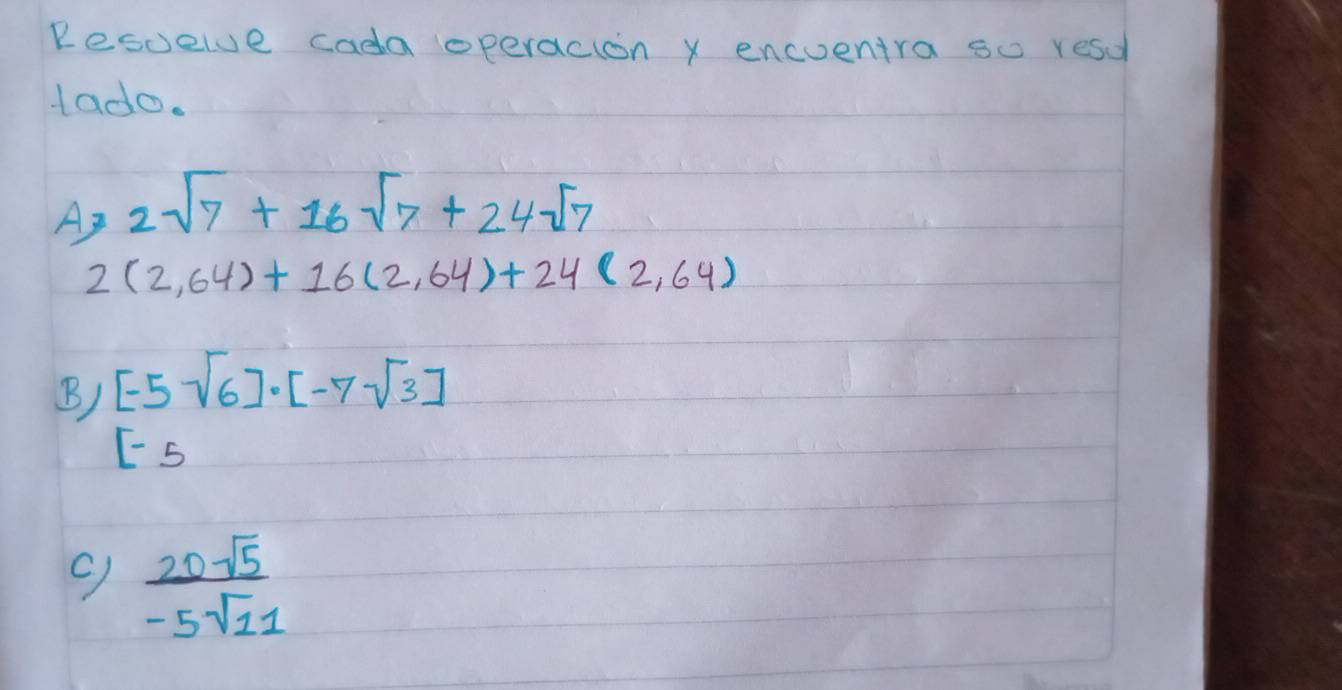 Resuelve cada operación y encuentra su resul
tado.
A) 2√7 + 16√7 + 24√7
2(2,64)+ 16(2,64)+24(2,64)
B) [-5√6]·[-7√3]
[- 5
C) 20√5
-5√11